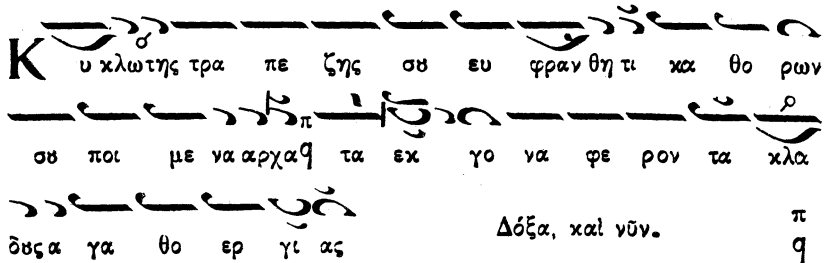 Κυ κλωτης τρα πε ζης σȣ ευ φραν θη τι κα θο ρων
σȣ ποι με να αρχα π ϥ τα εκ γο να φε ρον τα κλα
δȣς α γα θο ερ γι ας Δόξα, καὶ νῦν. π ϥ